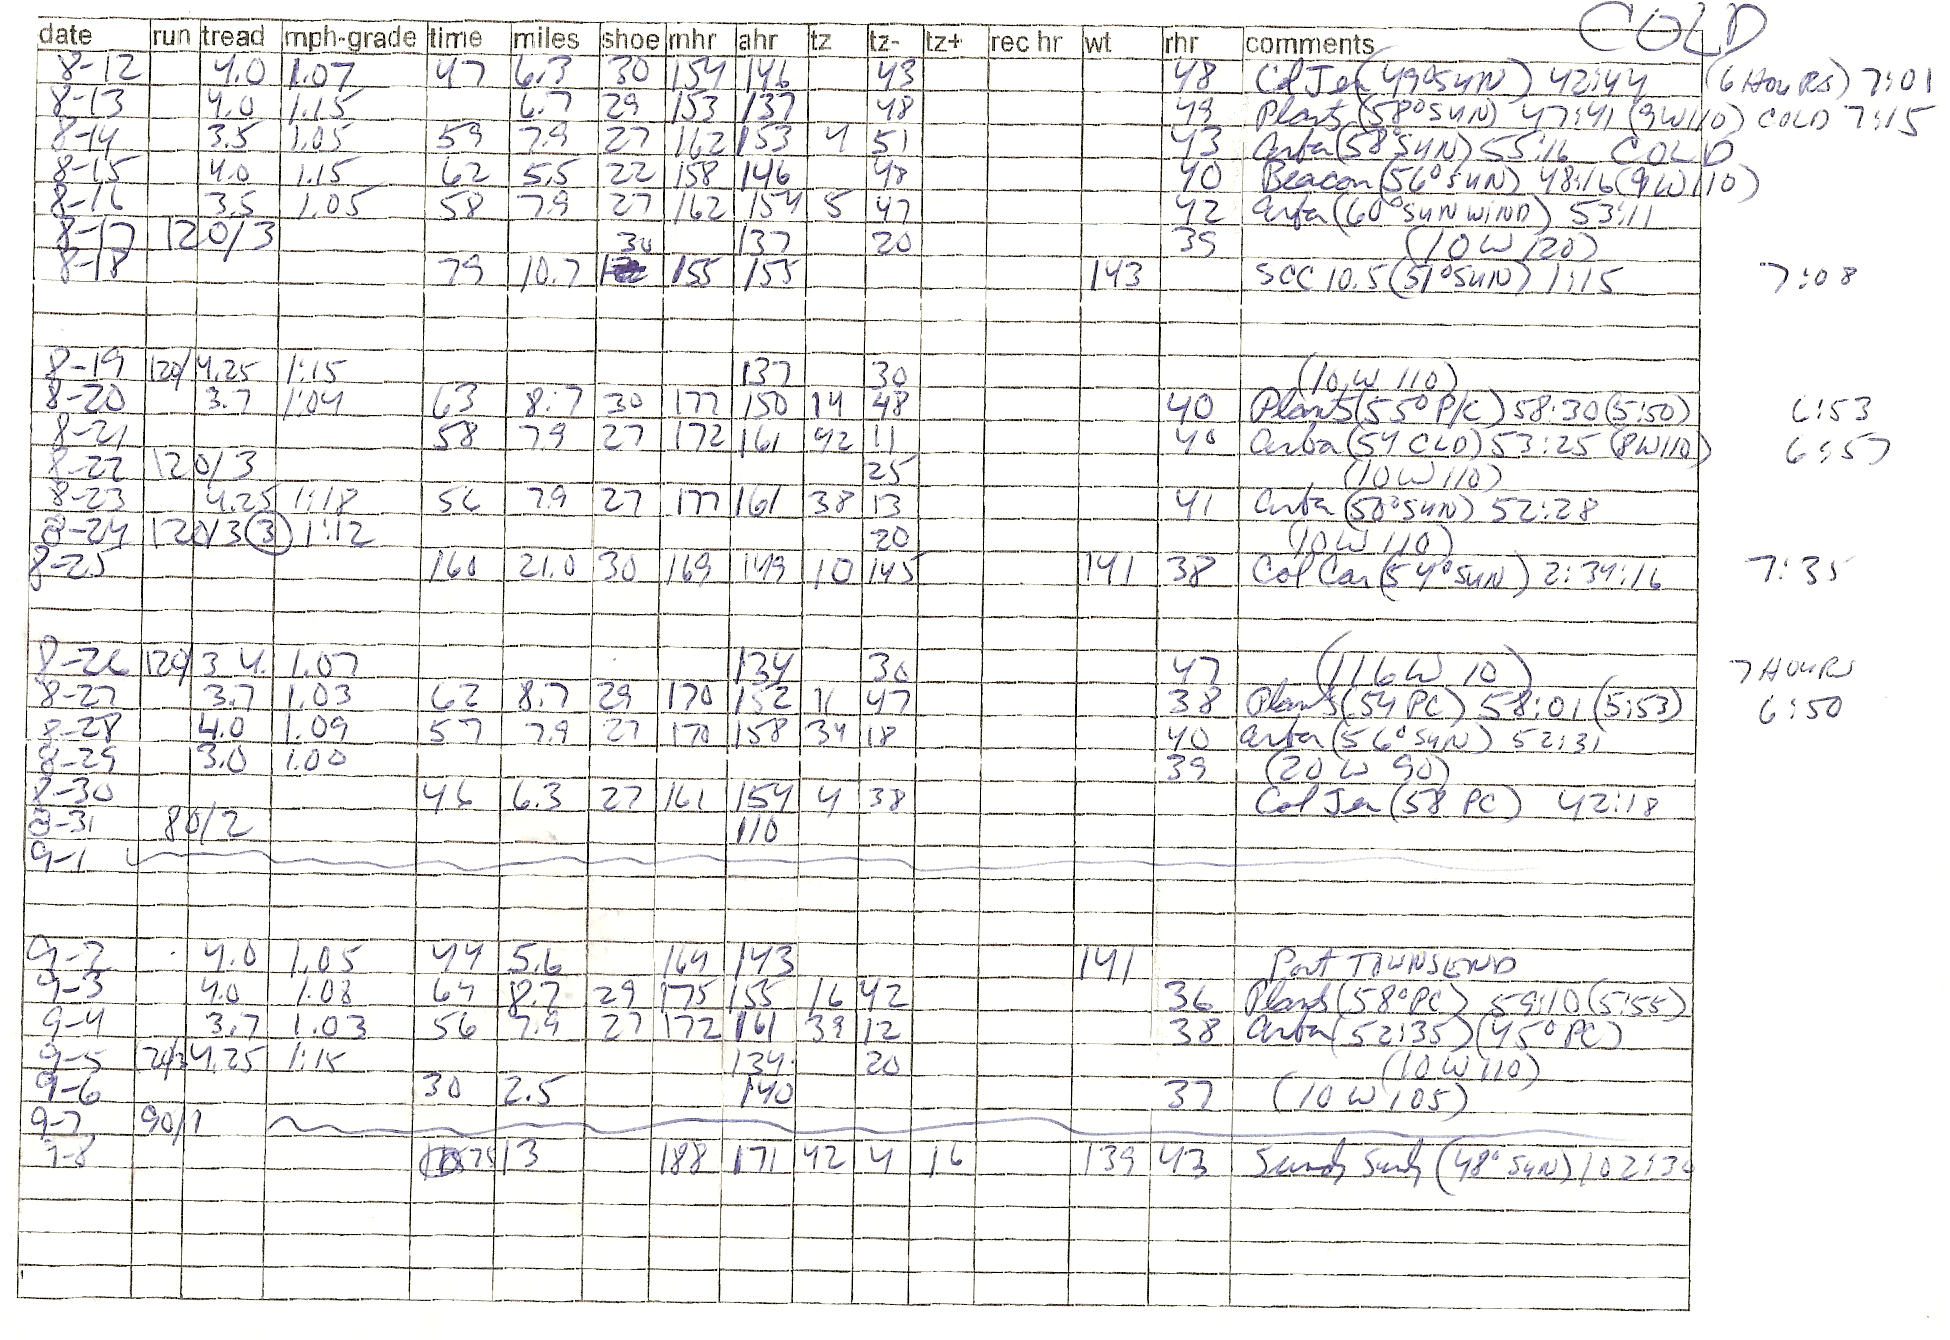 COLD
date run tread mph-grade time miles shoe mhr ahr tz tz- tz+ rec hr wt rhr comments
8-12 4.0 1.07 47 6.3 30 154 146 43 48 Col Jen (49° SUN) 42:44 (6 HOURS) 7:01
8-13 4.0 1.15 6.7 29 153 137 48 49 Plants (58° SUN) 47:41 (9W110) COLD 7:15
8-14 3.5 1.05 59 7.9 27 162 153 4 51 43 Arba (58° SUN) 55:16 COLD
8-15 4.0 1.15 62 5.5 22 158 146 48 40 Beacon (56° SUN) 48:16 (9W110)
8-16 3.5 1.05 58 7.9 27 162 154 5 47 42 Arba (60° SUN WIND) 53:11
8-17 120/3 137 20 39 (10 W 120)
8-18 79 10.7 30 155 155 143 SCC 10.5 (51° SUN) 1:15 7:08
8-19 120/4.25 1:15 137 30 (10 W 110)
8-20 3.7 1:04 63 8.7 30 177 150 14 48 40 Plants (55° P/C) 58:30 (5:50) 6:53
8-21 58 7.9 27 172 161 42 11 40 Arba (54 CLD) 53:25 (8W110) 6:57
8-22 120/3 25 (10 W 110)
8-23 4.25 1:18 56 7.9 27 177 161 38 13 41 Arba (50° SUN) 52:28
8-24 120/3 3 1:12 20 (10 W 110)
8-25 160 21.0 30 169 149 10 145 141 38 Col Car (54° SUN) 2:34:16 7:35
8-26 120/3 4. 1.07 134 30 47 (116 W 10) 7 HOURS
8-27 3.7 1.03 62 8.7 29 170 152 11 47 38 Plants (54 PC) 58:01 (5:53) 6:50
8-28 4.0 1.09 57 7.9 27 170 158 34 18 40 Arba (56° SUN) 52:31
8-29 3.0 1.00 39 (20 W 90)
8-30 46 6.3 27 161 154 4 38 Col Jen (58 PC) 42:18
8-31 80/2 110
9-1
9-2 4.0 1.05 44 5.6 164 143 141 Port TOWNSEND
9-3 4.0 1.08 64 8.7 29 175 155 16 42 36 Plants (58° PC) 59:10 (5:55)
9-4 3.7 1.03 56 7.9 27 172 161 39 12 38 Arba (52:35) (45° PC)
9-5 4.25 1:15 134 20 (10 W 110)
9-6 30 2.5 140 37 (10 W 105)
9-7 90/1
9-8 75 13 188 171 42 4 16 139 43 (48° SUN) 102:30